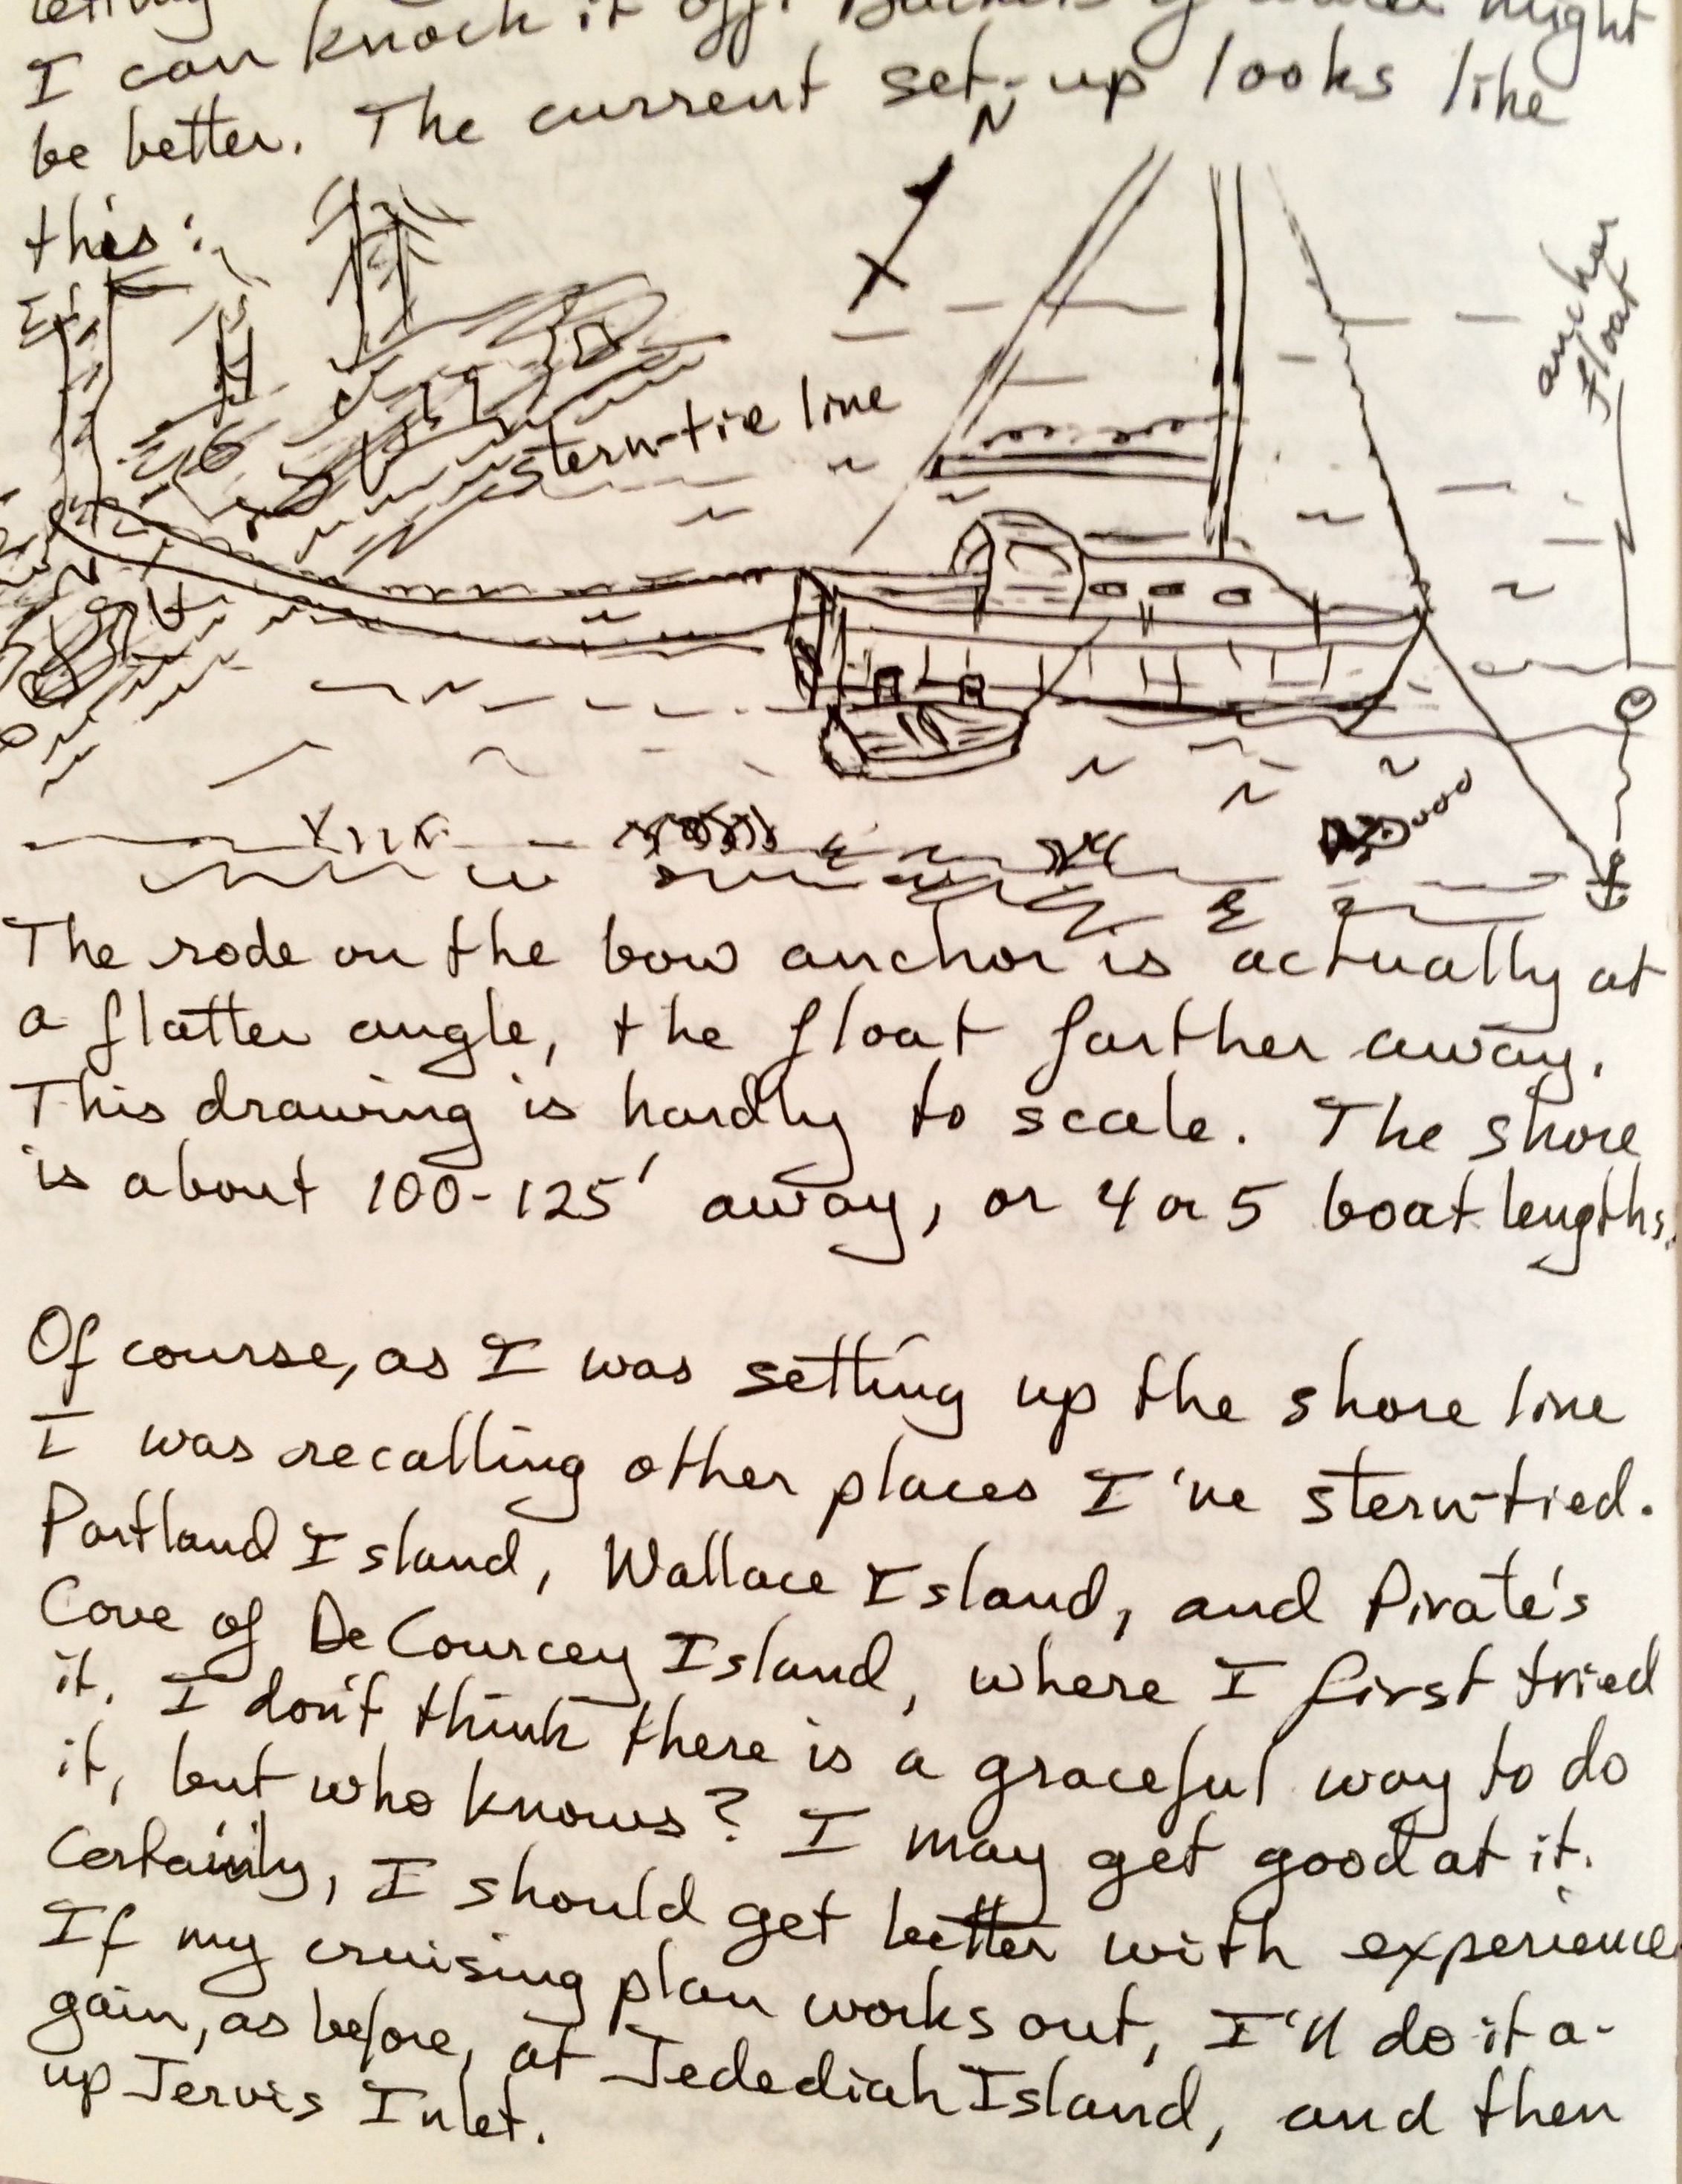 I can knock it off. Buckets of water might
be better. The current set-up looks like
this:
N
anchor
float
stern-tie line
The rode on the bow anchor is actually at
a flatter angle, the float farther away.
This drawing is hardly to scale. The shore
is about 100-125' away, or 4 or 5 boat lengths.
Of course, as I was setting up the shore line
I was recalling other places I've stern-tied.
Portland Island, Wallace Island, and Pirate's
Cove of De Courcey Island, where I first tried
it. I don't think there is a graceful way to do
it, but who knows? I may get good at it.
Certainly, I should get better with experience.
If my cruising plan works out, I'll do it a-
gain, as before, at Jedediah Island, and then
up Jervis Inlet.